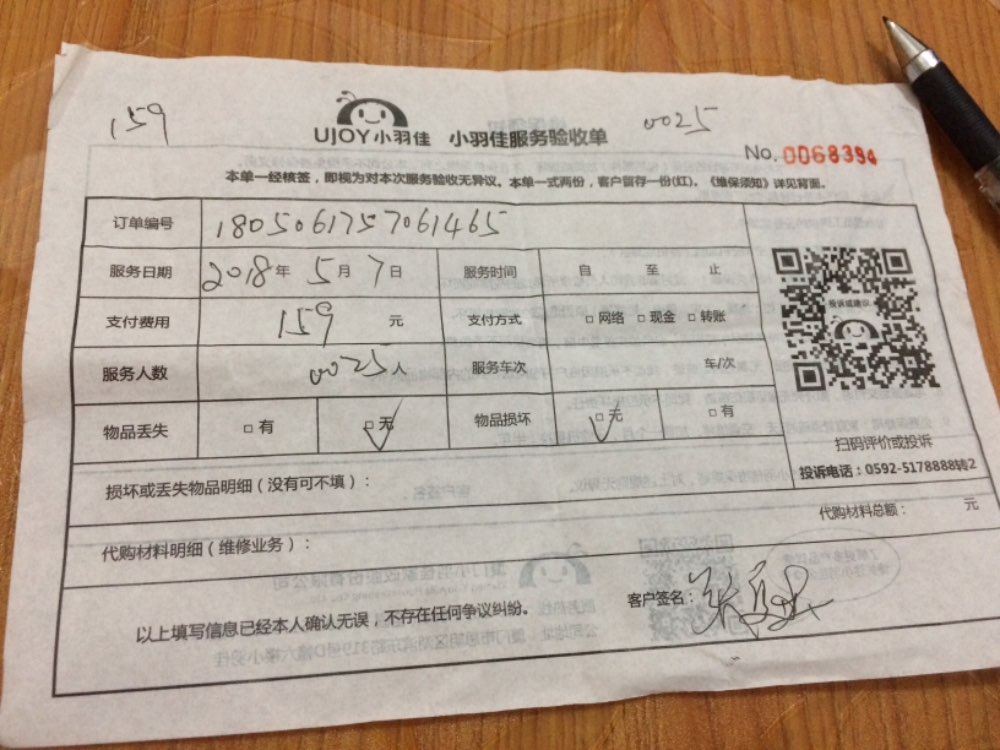 159
UJOY小羽佳 小羽佳服务验收单
0025
No. 0068394
本单一经核签，即视为对本次服务验收无异议。本单一式两份，客户留存一份(红)。《维保须知》详见背面。
订单编号 1805061757061465
服务日期 2018年 5月 7日 服务时间 自 至 止
支付费用 159 元 支付方式 □网络 □现金 □转账
服务人数 0025人 服务车次 车/次
物品丢失 □有 □无 物品损坏 □无 □有
投诉或建议
扫码评价或投诉
投诉电话：0592-5178888转2
损坏或丢失物品明细（没有可不填）：
代购材料总额： 元
代购材料明细（维修业务）：
客户签名：
以上填写信息已经本人确认无误，不存在任何争议纠纷。